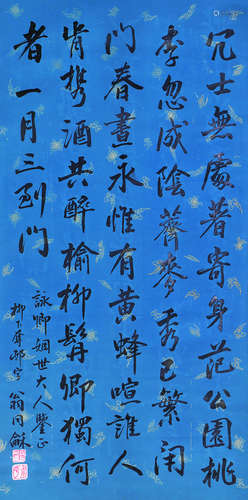 冗士無處著寄身范公園桃
李忽成陰薺麥秀已繁閉
門春晝永惟有黃蜂喧誰人
肯攜酒共醉榆柳髯卿獨何
者一月三到門
詠卿姻世大人鑒正
翁同龢